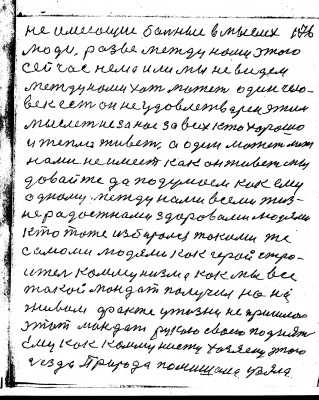 не имеющие больные в мыслях 176
люди, разве между нами этого
сейчас нема или мы не видем
между нами хот может один чело-
век сет он не удовлетварен этим
мыслет не за нас за всех кто хорошо
и тепло живет, а один может меж
нами не имеет как он живет мы
довайте да подумаем как ему
одному между нами всеми жиз-
нерадостнами здоровами людями
кто тоже избирался такими же
самоми людями как герой стро-
ител коммунизма как мы все
такой мандат получил но на
живом факте у жизни не пришлос
этот мандат рукою своею поднят
ему как коммунисту хозяену этого
Природа помишала взяла